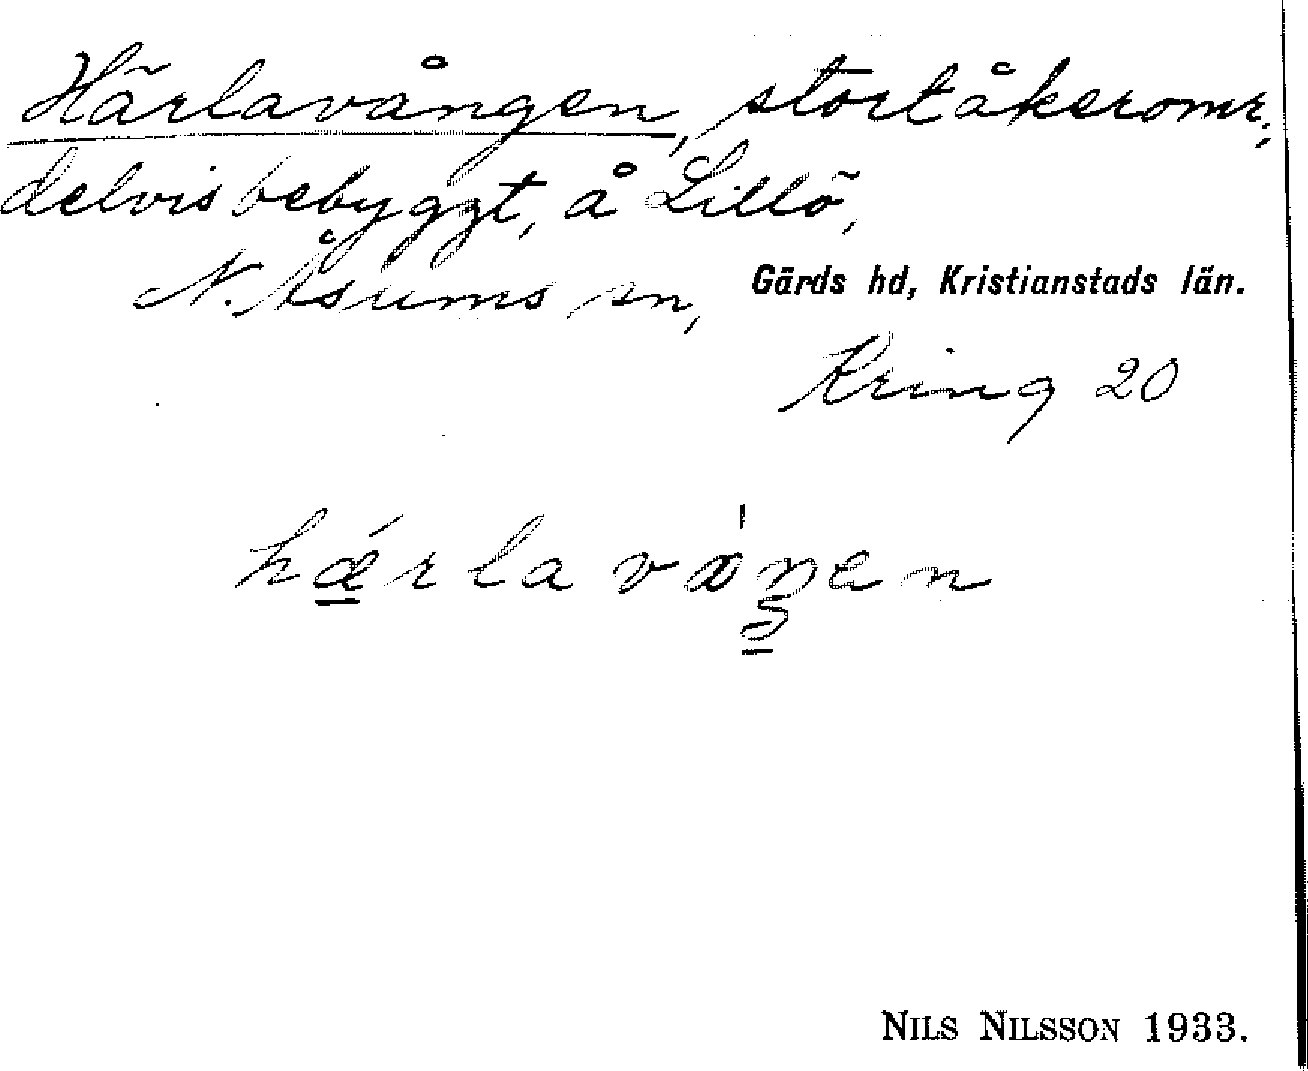 Härlavången, stort åkeromr.,
delvis bebyggt, å Lillö,
N. Åsums sn, Gärds hd, Kristianstads län.
Kring 20
hǽrlaváŋen
NILS NILSSON 1933.